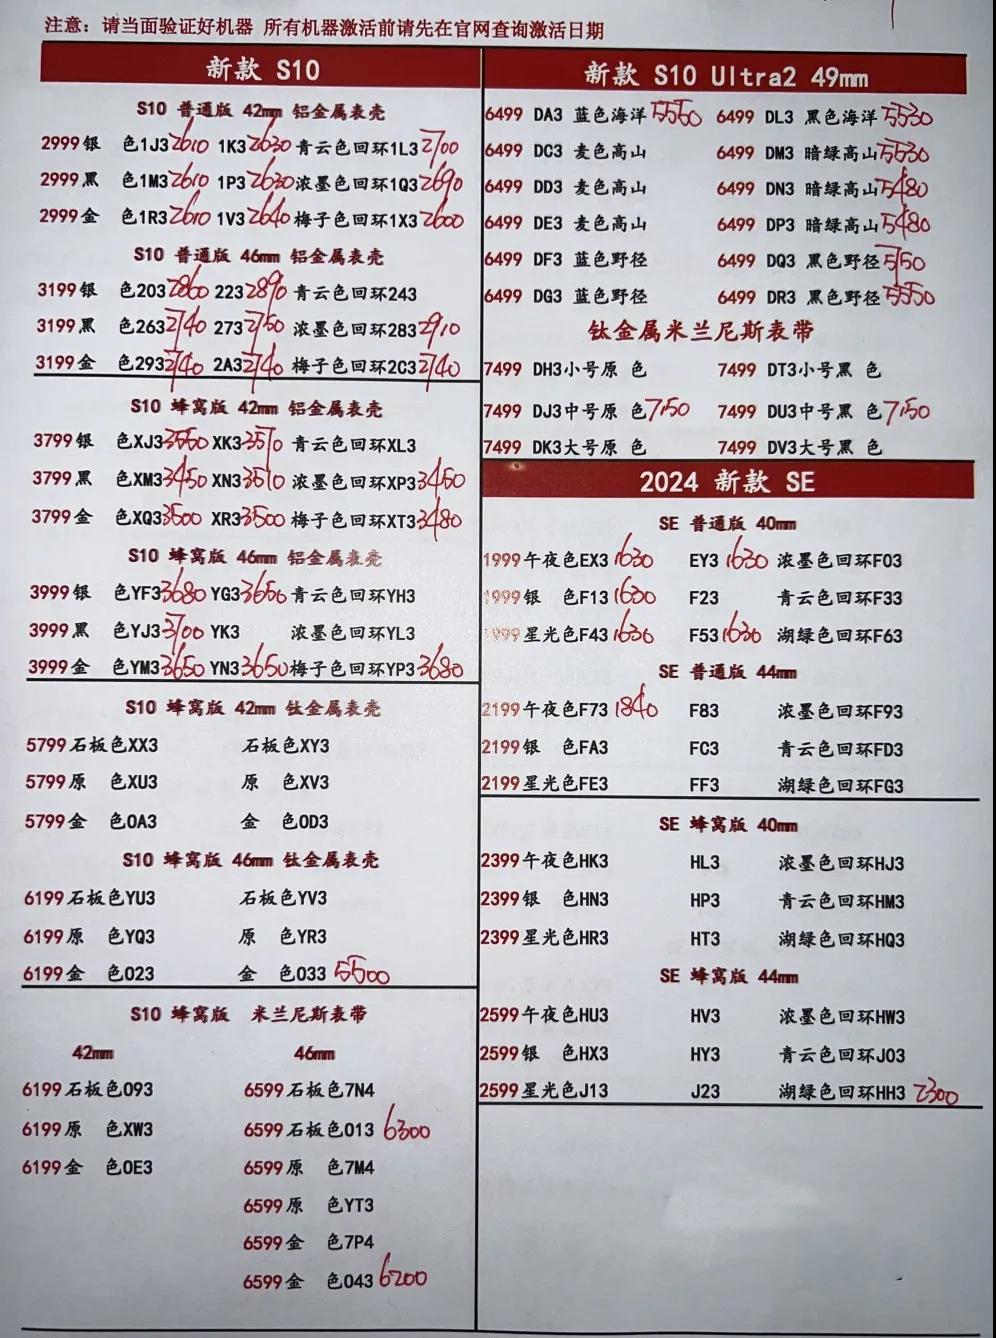 注意：请当面验证好机器 所有机器激活前请先在官网查询激活日期
新款 S10
S10 普通版 42mm 铝金属表壳
2999 银 色1J3 2610 1K3 2630 青云色回环1L3 2700
2999 黑 色1M3 2610 1P3 2630 浓墨色回环1Q3 2690
2999 金 色1R3 2610 1V3 2640 梅子色回环1X3 2600
S10 普通版 46mm 铝金属表壳
3199 银 色203 2860 223 2890 青云色回环243
3199 黑 色263 2740 273 2750 浓墨色回环283 2910
3199 金 色293 2740 2A3 2740 梅子色回环2C3 2740
S10 蜂窝版 42mm 铝金属表壳
3799 银 色XJ3 3550 XK3 3570 青云色回环XL3
3799 黑 色XM3 3450 XN3 3510 浓墨色回环XP3 3450
3799 金 色XQ3 3500 XR3 3500 梅子色回环XT3 3480
S10 蜂窝版 46mm 铝金属表壳
3999 银 色YF3 3680 YG3 3650 青云色回环YH3
3999 黑 色YJ3 3700 YK3 浓墨色回环YL3
3999 金 色YM3 3650 YN3 3650 梅子色回环YP3 3680
S10 蜂窝版 42mm 钛金属表壳
5799 石板色XX3 石板色XY3
5799 原 色XU3 原 色XV3
5799 金 色0A3 金 色0D3
S10 蜂窝版 46mm 钛金属表壳
6199 石板色YU3 石板色YV3
6199 原 色YQ3 原 色YR3
6199 金 色023 金 色033 5500
S10 蜂窝版 米兰尼斯表带
42mm 46mm
6199 石板色093 6599 石板色7N4
6199 原 色XW3 6599 石板色013 6300
6199 金 色0E3 6599 原 色7M4
6599 原 色YT3
6599 金 色7P4
6599 金 色043 6200
新款 S10 Ultra2 49mm
6499 DA3 蓝色海洋 5560 6499 DL3 黑色海洋 5530
6499 DC3 麦色高山 6499 DM3 暗绿高山 5530
6499 DD3 麦色高山 6499 DN3 暗绿高山 5480
6499 DE3 麦色高山 6499 DP3 暗绿高山 5480
6499 DF3 蓝色野径 6499 DQ3 黑色野径 5550
6499 DG3 蓝色野径 6499 DR3 黑色野径 5550
钛金属米兰尼斯表带
7499 DH3小号原 色 7499 DT3小号黑 色
7499 DJ3中号原 色 7150 7499 DU3中号黑 色 7150
7499 DK3大号原 色 7499 DV3大号黑 色
2024 新款 SE
SE 普通版 40mm
1999 午夜色EX3 1630 EY3 1630 浓墨色回环F03
1999 银 色F13 1630 F23 青云色回环F33
1999 星光色F43 1630 F53 1630 湖绿色回环F63
SE 普通版 44mm
2199 午夜色F73 1840 F83 浓墨色回环F93
2199 银 色FA3 FC3 青云色回环FD3
2199 星光色FE3 FF3 湖绿色回环FG3
SE 蜂窝版 40mm
2399 午夜色HK3 HL3 浓墨色回环HJ3
2399 银 色HN3 HP3 青云色回环HM3
2399 星光色HR3 HT3 湖绿色回环HQ3
SE 蜂窝版 44mm
2599 午夜色HU3 HV3 浓墨色回环HW3
2599 银 色HX3 HY3 青云色回环J03
2599 星光色J13 J23 湖绿色回环HH3 2300